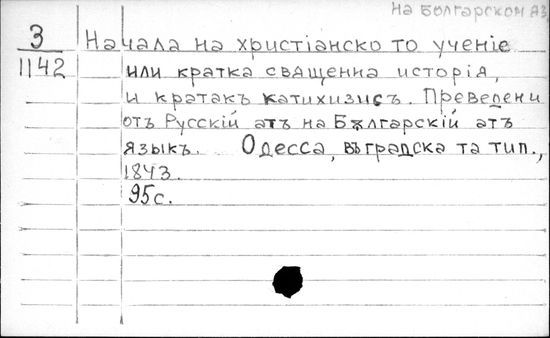 на Болгарском яз
З Начала на христіанско то ученіе
1142 или кратка священна исторія,
и кратакъ катихизисъ. Преведени
отъ Русскій атъ на Бѫлгарскій атъ
языкъ. Одесса, въ градска та тип.,
1843.
95с.